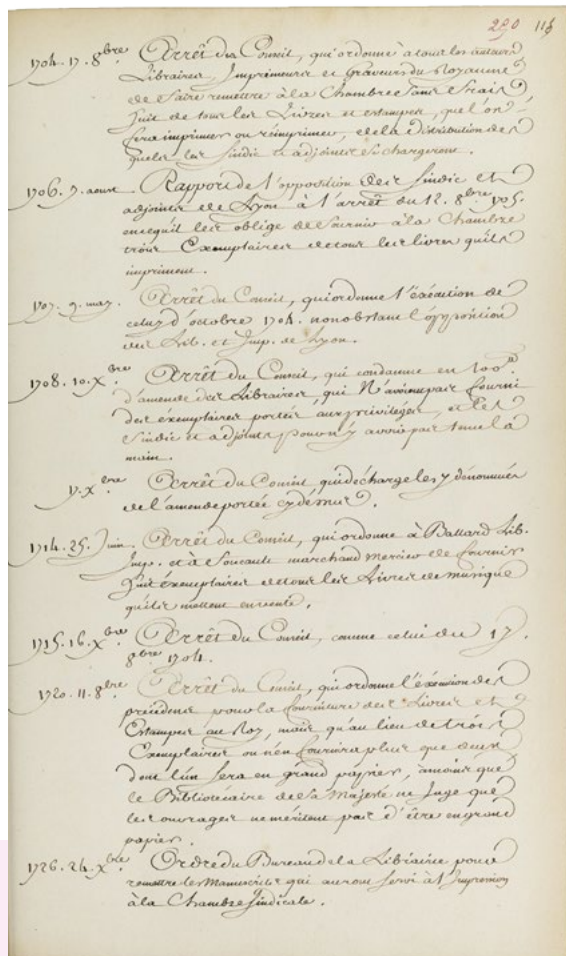 290 113
1704. 17. 8bre. Arrêt du Conseil, qui ordonne à tous les auteurs
Libraires, Imprimeurs et Graveurs du Royaume
de faire remettre à la Chambre sans frais
huit de tous les Livres et estampes, que l'on
fera imprimer ou réimprimer, de la distribution des
quels les sindic et adjoints se chargeront.
1706. 7. aoust. Rapport de l'opposition des sindic et
adjoints de Lyon à l'arrêt du 12. 8bre 1705.
en ce qu'il les oblige de fournir à la Chambre
trois Exemplaires de tous les livres qu'ils
impriment.
1707. 9. may. Arrêt du Conseil, qui ordonne l'éxécution de
celuy d'octobre 1704. nonobstant l'opposition
des Lib. et Imp. de Lyon.
1708. 10. Xbre. Arrêt du Conseil, qui condamne en 100tt
d'amende des Libraires, qui N'avoient pas fourni
des éxemplaires portés aux privileges, et les
Sindic et adjoints pour n'y avoir pas tenu la
main.
17. Xbre. Arrêt du Conseil qui décharge les y dénommés
de l'amende portée cy dessus.
1714. 25. Juin. Arrêt du Conseil, qui ordonne à Ballard Lib.
Imp. et à foucault marchand mercier de fournir
huit éxemplaires de tous les Livres de musique
qu'ils mettent en vente.
1715. 16. Xbre. Arrêt du Conseil, comme celui du 17.
8bre 1704.
1720. 11. 8bre. Arrêt du Conseil, qui ordonne l'éxécution des
précédens pour la fourniture des Livres et
Estampes au Roy, mais qu'au lieu de trois
Exemplaires on n'en fournira plus que deux
dont l'un sera en grand papier, à moins que
le Bibliotécaire de Sa Majesté ne Juge que
les ouvrages ne méritent pas d'être en grand
papier.
1726. 24. Xbre. Ordre du Bureau de la Librairie pour
remettre les Manuscrits qui auront servi à l'Impression
à la Chambre Sindicale.